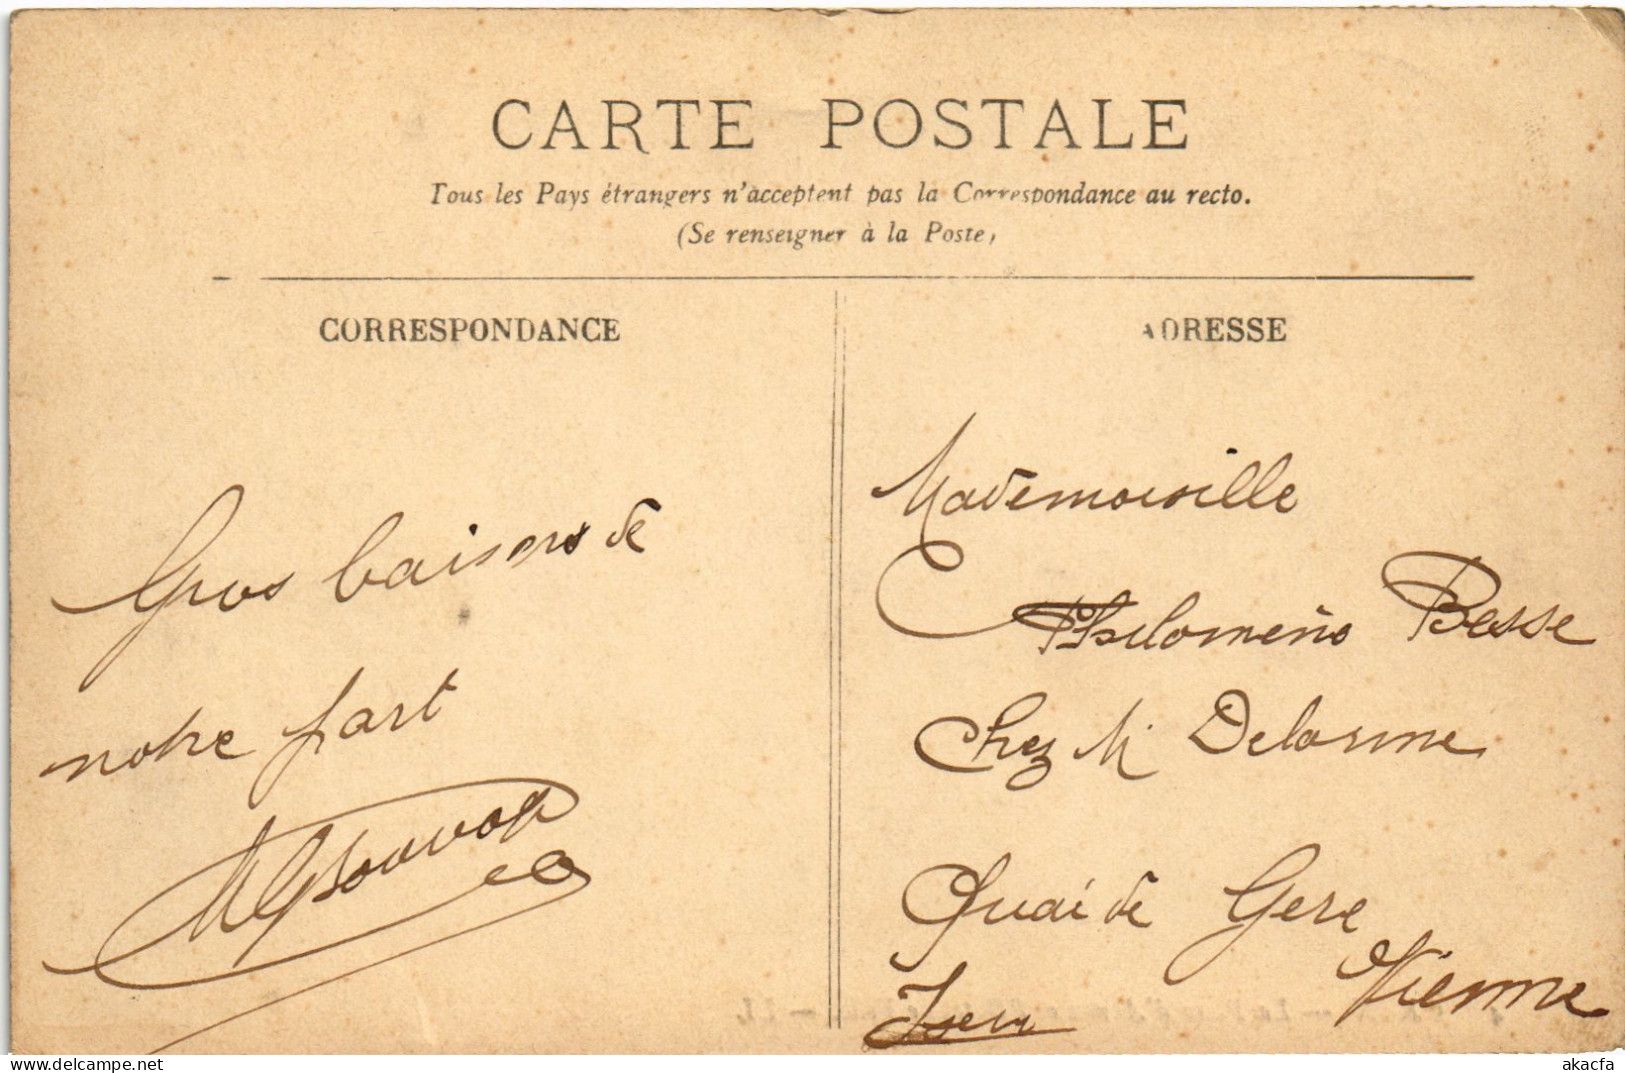 CARTE POSTALE
Tous les Pays étrangers n'acceptent pas la Correspondance au recto.
(Se renseigner à la Poste)
CORRESPONDANCE
ADRESSE
Gros baisers de
notre part
Mademoiselle
Philomène Besse
Chez M Delorme
Quai de Gere
Vienne
Isere
delcampe.net
akacfa